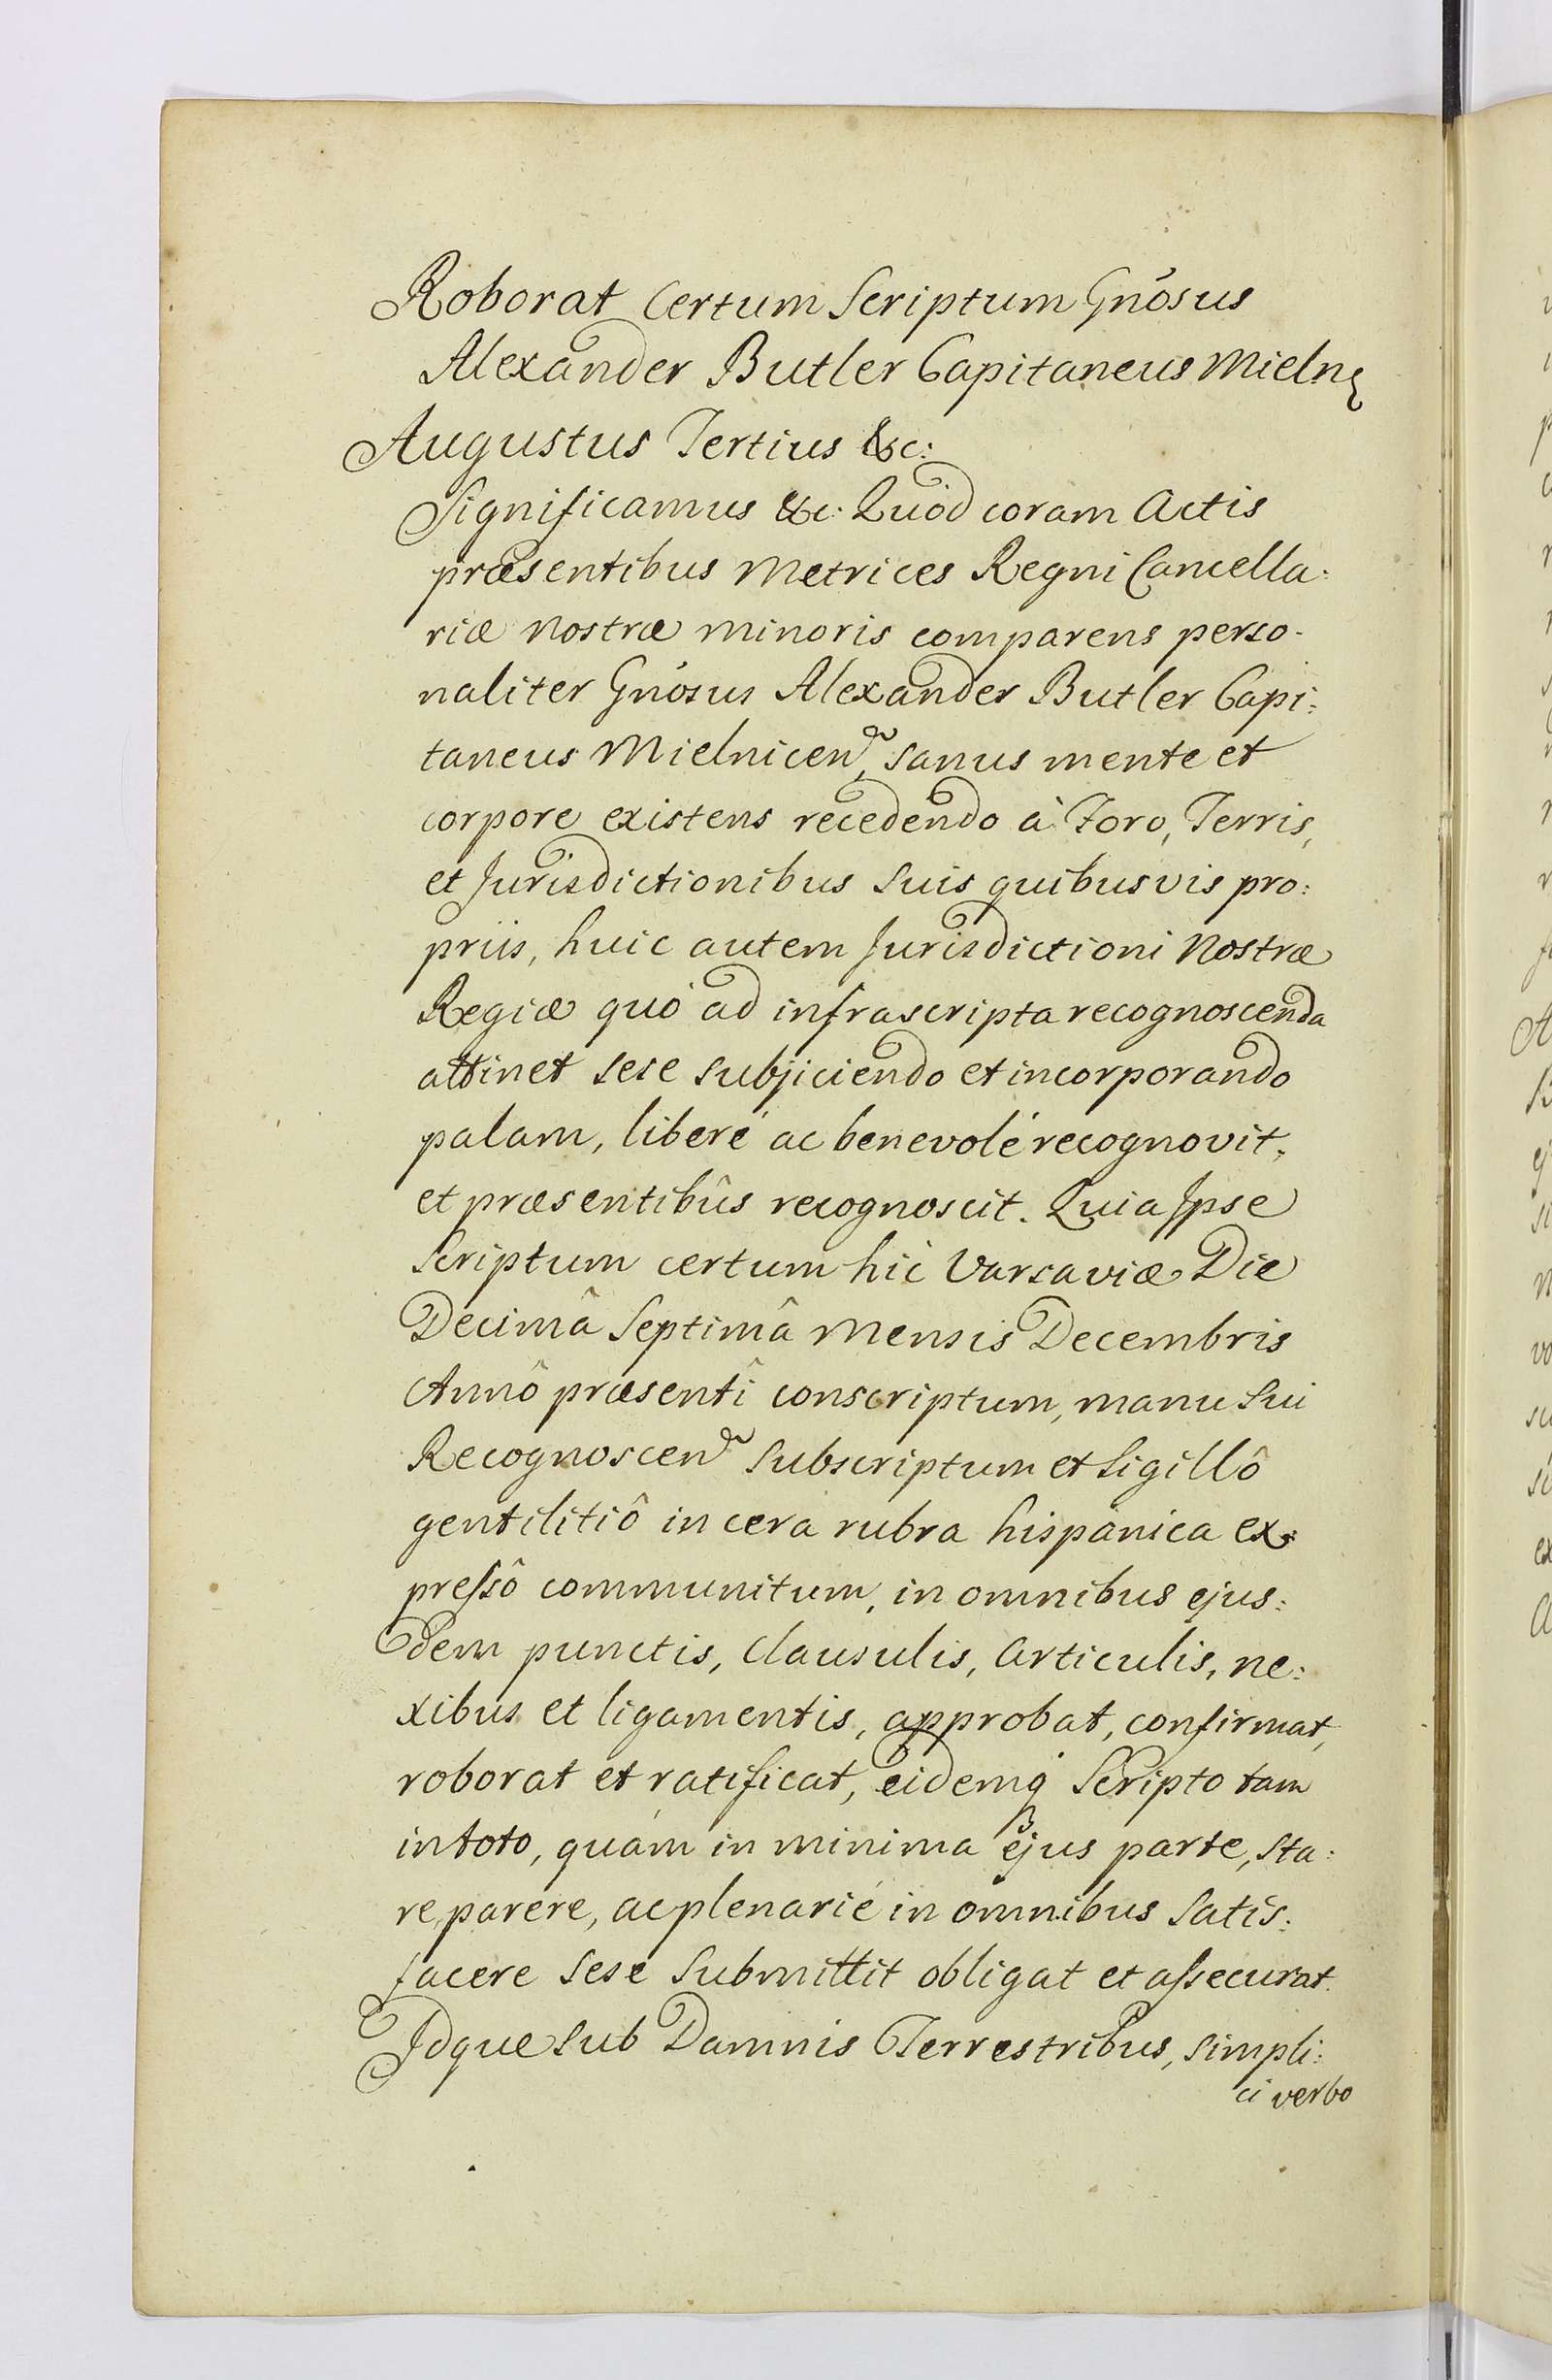 Roborat Certum Scriptum Gnosus
Alexander Butler Capitaneus Mieln
Augustus Tertius &c:
Significamus &c. Quòd coram Actis
præsentibus Metrices Regni Cancella:
riæ Nostræ Minoris comparens perso-
naliter Gnosus Alexander Butler Capi:
taneus Mielnicen, sanus mente et
corpore existens recedendo à Foro, Terris,
et Jurisdictionibus suis quibusvis pro:
priis, huic autem Jurisdictioni Nostræ
Regiæ quò ad infrascripta recognoscenda
attinet sese subjiciendo et incorporando
palam, liberé ac benevolé recognovit,
et præsentibûs recognoscit. Quia Ipse
Scriptum certum hîc Varsaviæ Die
Decimâ Septimâ Mensis Decembris
Annô præsentî conscriptum, manu sui
Recognoscen subscriptum et Sigillô
gentilitiô in cera rubra hispanica ex:
preſsô communitum, in omnibus ejus:
dem punctis, Clausulis, Articulis, ne:
xibus et ligamentis, approbat, confirmat,
roborat et ratificat, eidemq Scripto tam
in toto, quám in minima ejus parte, sta:
re, parere, ac plenarié in omnibus satis:
facere sese submittit obligat et aſsecurat.
Idque sub Damnis Terrestribus, simpli:
ci verbo